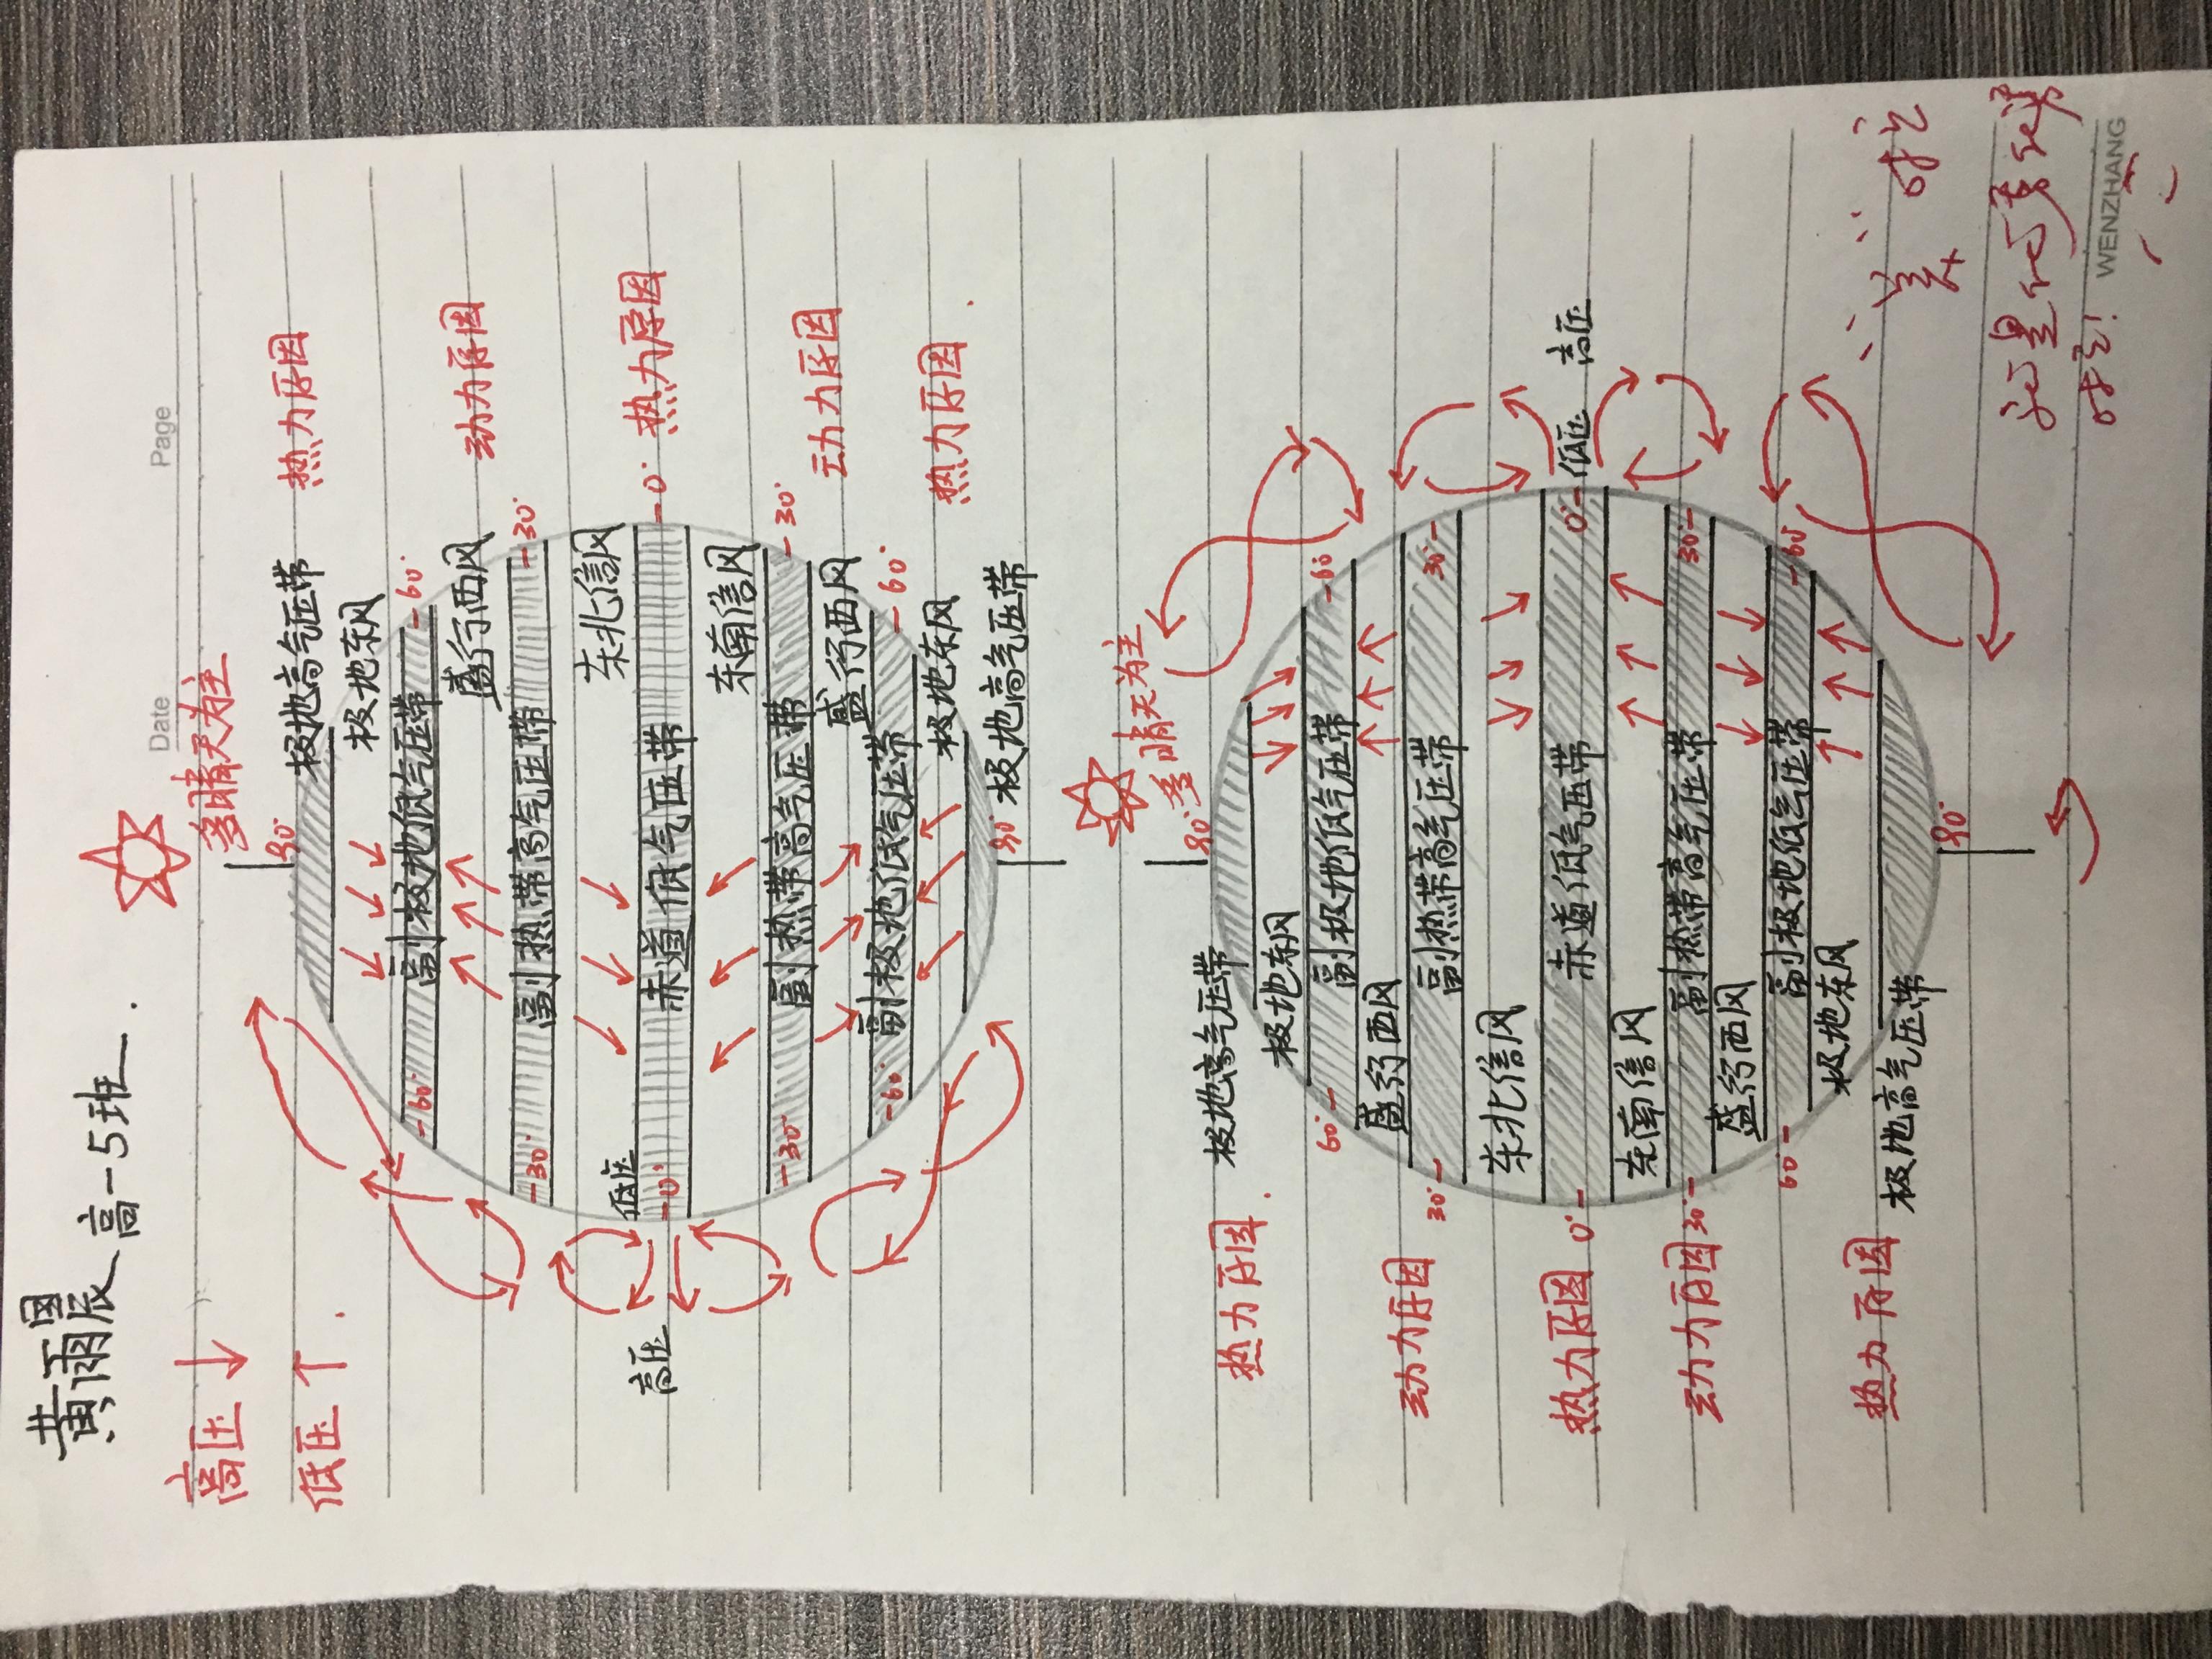 黄雨晨 高一5班.
Date
Page
高压↓
低压↑.
多晴天为主
90°
极地高气压带
热力原因
极地东风
-60°
副极地低气压带
-60°
盛行西风
动力原因
-30°
副热带高气压带
-30°
东北信风
高压
低压
-0°
赤道低气压带
-0°
热力原因
东南信风
-30°
副热带高气压带
-30°
动力原因
盛行西风
-60°
副极地低气压带
-60°
极地东风
热力原因.
90°
极地高气压带
多晴天为主
90°
热力原因.
极地高气压带
极地东风
60°-
副极地低气压带
-60°
盛行西风
动力原因
30°-
副热带高气压带
30°-
东北信风
热力原因
0°-
赤道低气压带
0°-
低压
高压
东南信风
动力原因
30°-
副热带高气压带
30°-
盛行西风
60°-
副极地低气压带
-60°
极地东风
热力原因
极地高气压带
90°
WENZHANG